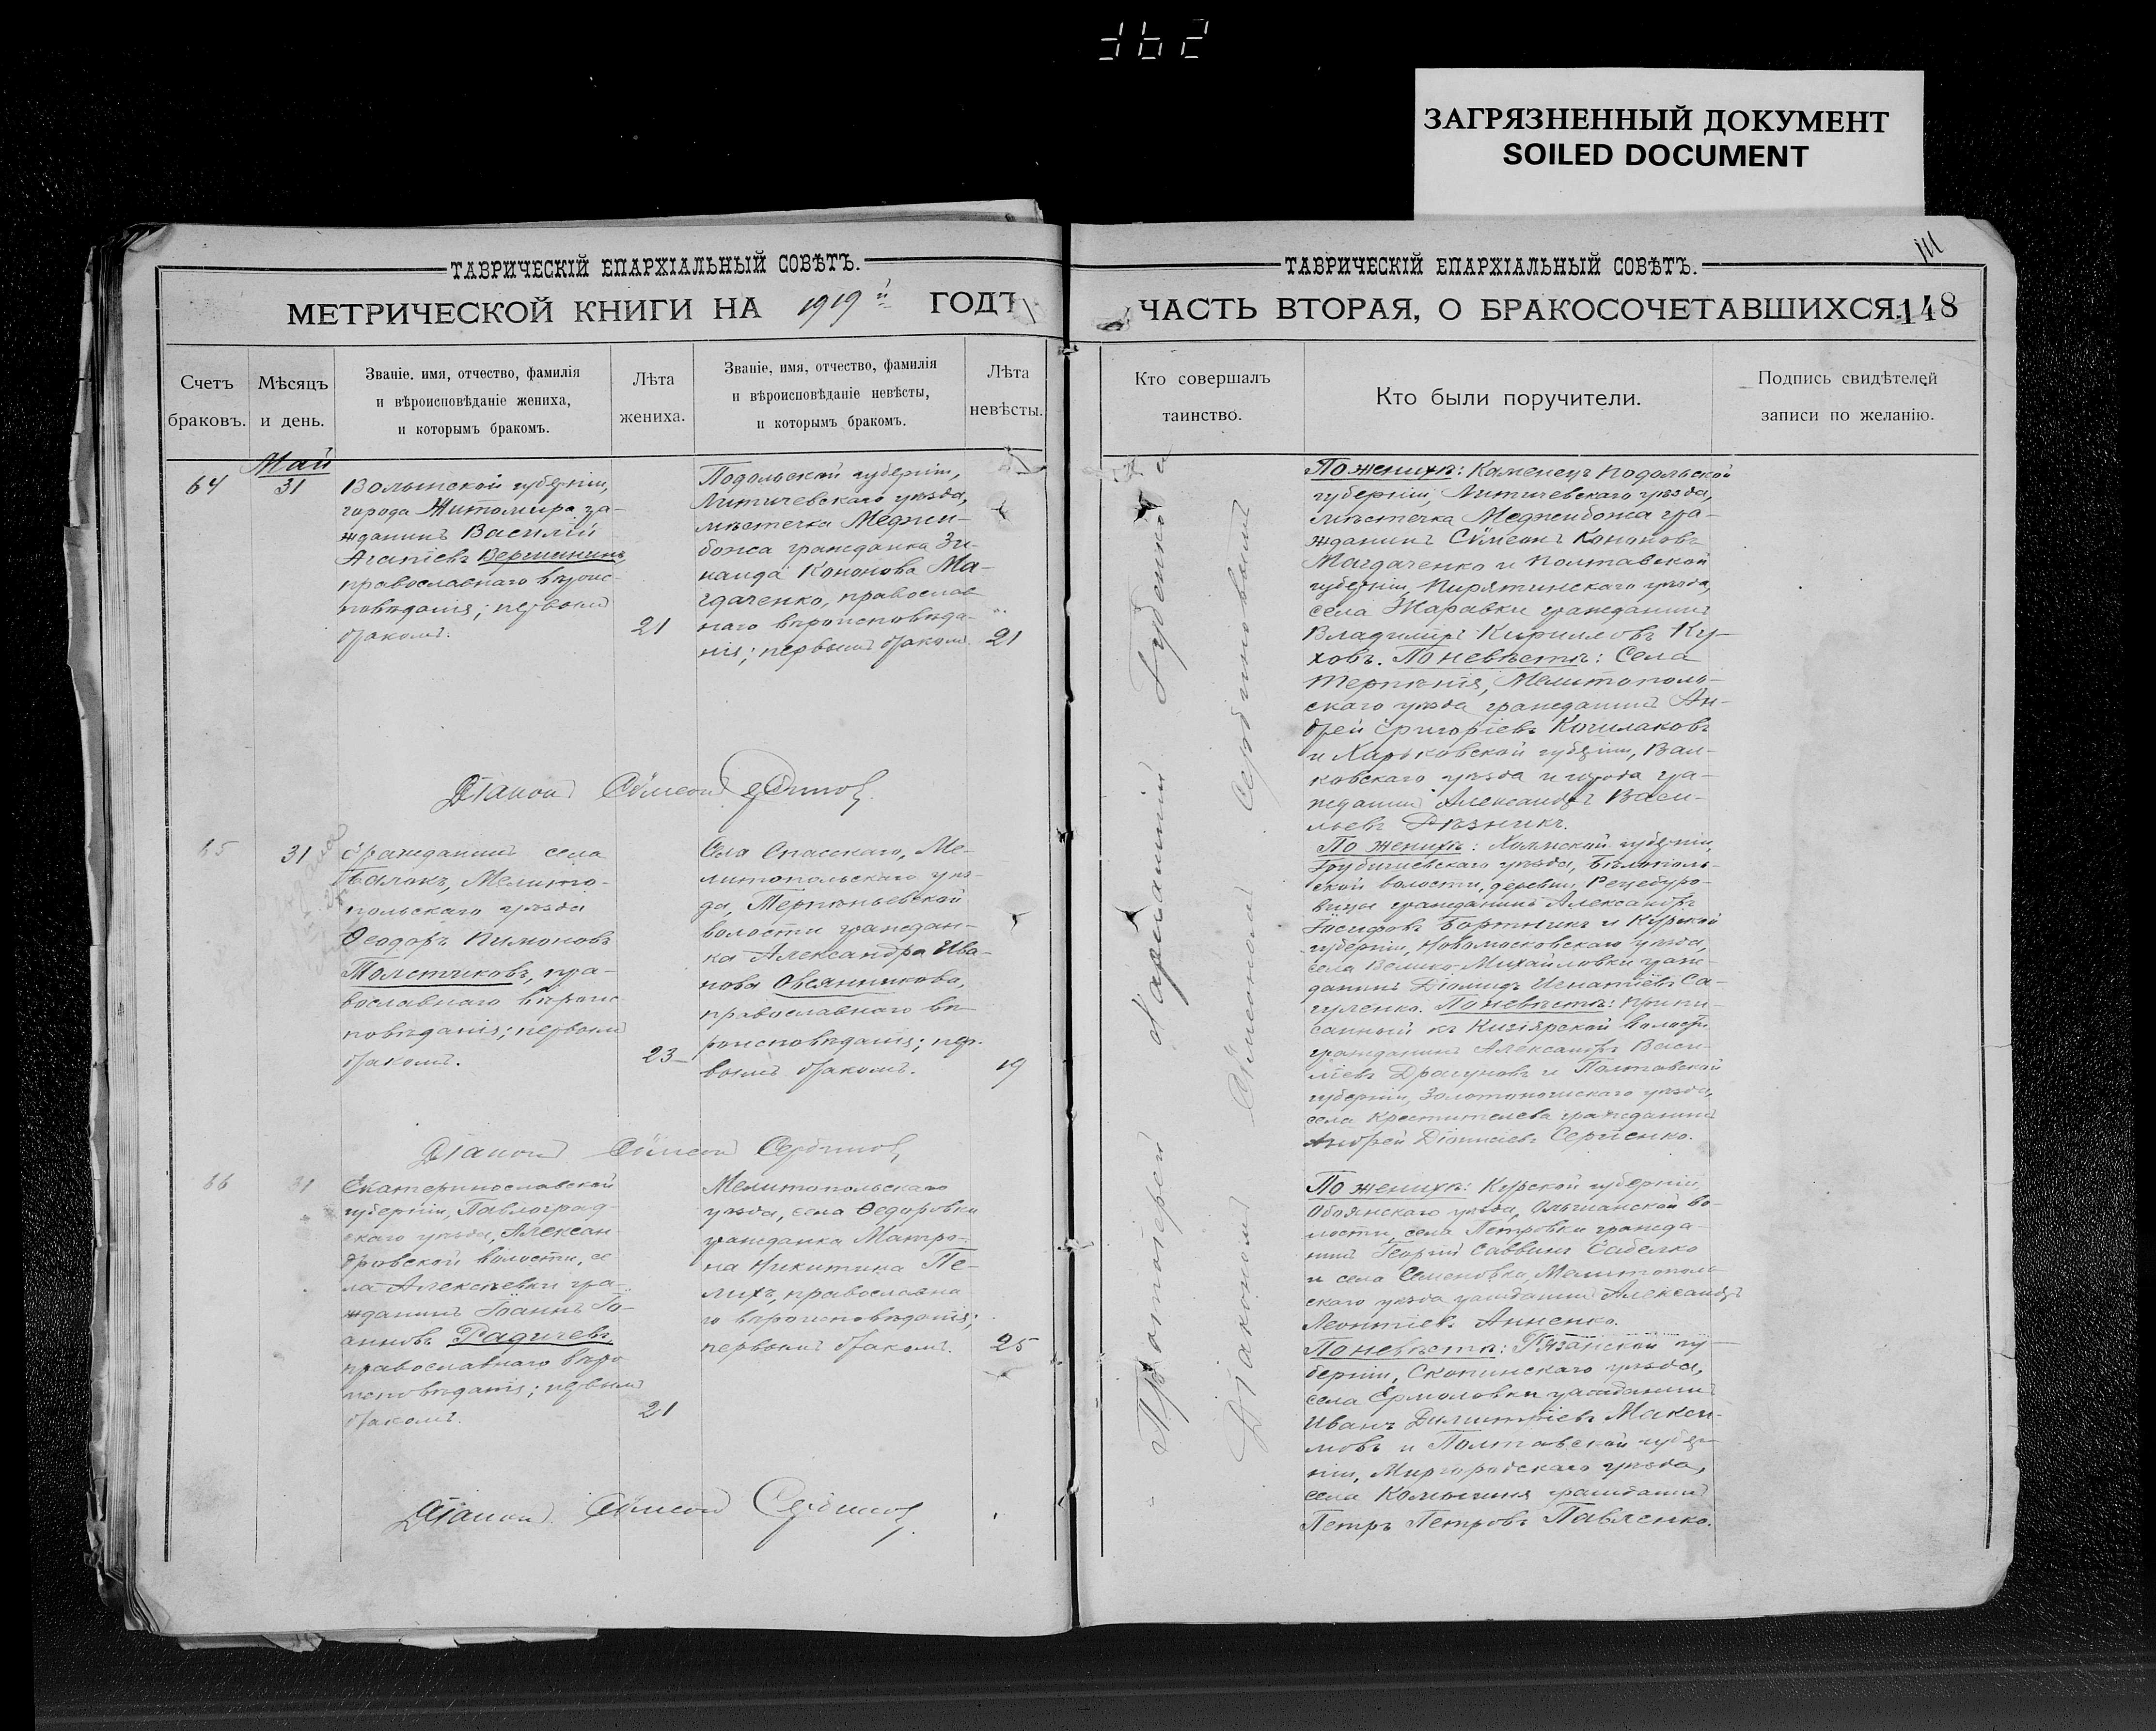 ЗАГРЯЗНЕННЫЙ ДОКУМЕНТ
SOILED DOCUMENT
ТАВРИЧЕСКІЙ ЕПАРХІАЛЬНЫЙ СОВѢТЪ.
МЕТРИЧЕСКОЙ КНИГИ НА 1919й ГОДЪ
Счетъ
браковъ.
Мѣсяцъ
и день.
Званіе. имя, отчество, фамилія
и вѣроисповѣданіе жениха,
и которымъ бракомъ.
Лѣта
жениха.
Званіе, имя, отчество, фамилія
и вѣроисповѣданіе невѣсты,
и которымъ бракомъ.
Лѣта
невѣсты.
Май
64
31
Волынской губерніи,
города Житомира гра-
жданинъ Василій
Агапіевъ Вершининъ
православнаго вѣроис-
повѣданія; первымъ
бракомъ.
21
Подольской губерніи,
Литичевскаго уѣзда,
мѣстечка Меджи-
божа гражданка Зи-
наида Кононова Ма-
гдаченко, православ
наго вѣроисповѣда-
нія; первымъ бракомъ.
21
Діаконъ Сѵмеонъ
65
31
Гражданинъ села
Балокъ, Мелито-
польскаго уѣзда
Ѳеодоръ Пимоновъ
Толстиковъ, пра-
вославнаго вѣроис
повѣданія; первымъ
бракомъ.
23
Села Спасскаго, Ме-
литопольскаго уѣз-
да, Терпѣньевской
волости граждан-
ка Александра Ива-
нова Овсянникова,
православнаго вѣ-
роисповѣданія; пер-
вымъ бракомъ.
19
Діаконъ Сѵмеонъ Сербиновъ
66
31
Екатеринославской
губерніи, Павлоград-
скаго уѣзда, Алексан
дровской волости, се
ла Алексѣевки гра-
жданинъ Іоаннъ Іо-
анновъ Радичевъ
православнаго вѣро
исповѣданія; первымъ
бракомъ.
21
Мелитопольскаго
уѣзда, села Ѳедоровки
гражданка Матро-
на Никитина Пе-
лихъ, православна
го вѣроисповѣданія;
первымъ бракомъ.
25
Діаконъ Сѵмеонъ Сербиновъ
ТАВРИЧЕСКІЙ ЕПАРХІАЛЬНЫЙ СОВѢТЪ.
111
ЧАСТЬ ВТОРАЯ, О БРАКОСОЧЕТАВШИХСЯ.
148
Кто совершалъ
таинство.
Кто были поручители.
Подпись свидѣтелей
записи по желанію.
Протоіерей
Діакономъ Сѵмеономъ Сербиновымъ
По женихѣ: Каменецъ Подольской
губерніи, Литичевскаго уѣзда,
мѣстечка Меджибожа гра-
жданинъ Сѵмеонъ Кононовъ
Магдаченко и Полтавской
губерніи, Пирятинскаго уѣзда,
села Жаравки гражданинъ
Владиміръ Кирилловъ Ку-
ховъ. По невѣстѣ: Села
Терпѣнія, Мелитополь-
скаго уѣзда гражданинъ Ан-
дрей Григоріевъ
и Харьковской губерніи, Вал-
ковскаго уѣзда и города гра-
жданинъ Александръ Васи-
льевъ Рѣзникъ.
По женихѣ: Холмской губерніи,
Грубешевскаго уѣзда,
ской волости, деревни
гражданинъ Александръ
Іосифовъ Бортникъ и Курской
губерніи, Новомосковскаго уѣзда,
села Велико-Михайловки граж-
данинъ Діомидъ Игнатіевъ Са-
гуленко. По невѣстѣ: Припи-
санный къ Кизіярской волости
гражданинъ Александръ Васи-
ліевъ Драгуновъ и Полтавской
губерніи, Золотоношскаго уѣзда,
села Крестителева гражданинъ
Андрей Діонисіевъ Сергіенко.
По женихѣ: Курской губерніи,
Обоянскаго уѣзда, Ольшанской во-
лости, села Петровки гражда-
нинъ Георгій Саввинъ
и села Семеновки, Мелитополь
скаго уѣзда гражданинъ Александръ
Леонтіевъ Анненко.
По невѣстѣ: Рязанской гу-
берніи, Скопинскаго уѣзда,
села Ермоловки гражданинъ
Иванъ Димитріевъ Макси-
мовъ и Полтавской губер-
ніи, Миргородскаго уѣзда,
села Комышня гражданинъ
Петръ Петровъ Павленко.